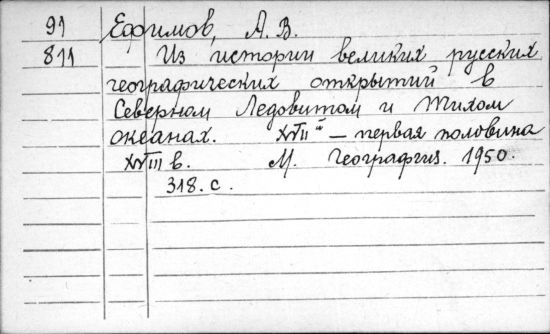 91 Ефимов, А. В.
811 Из истории великих русских
географических открытий в
Северном Ледовитом и Тихом
океанах. XVII — первая половина
XVIII в. М. Географгиз. 1950.
318. с.